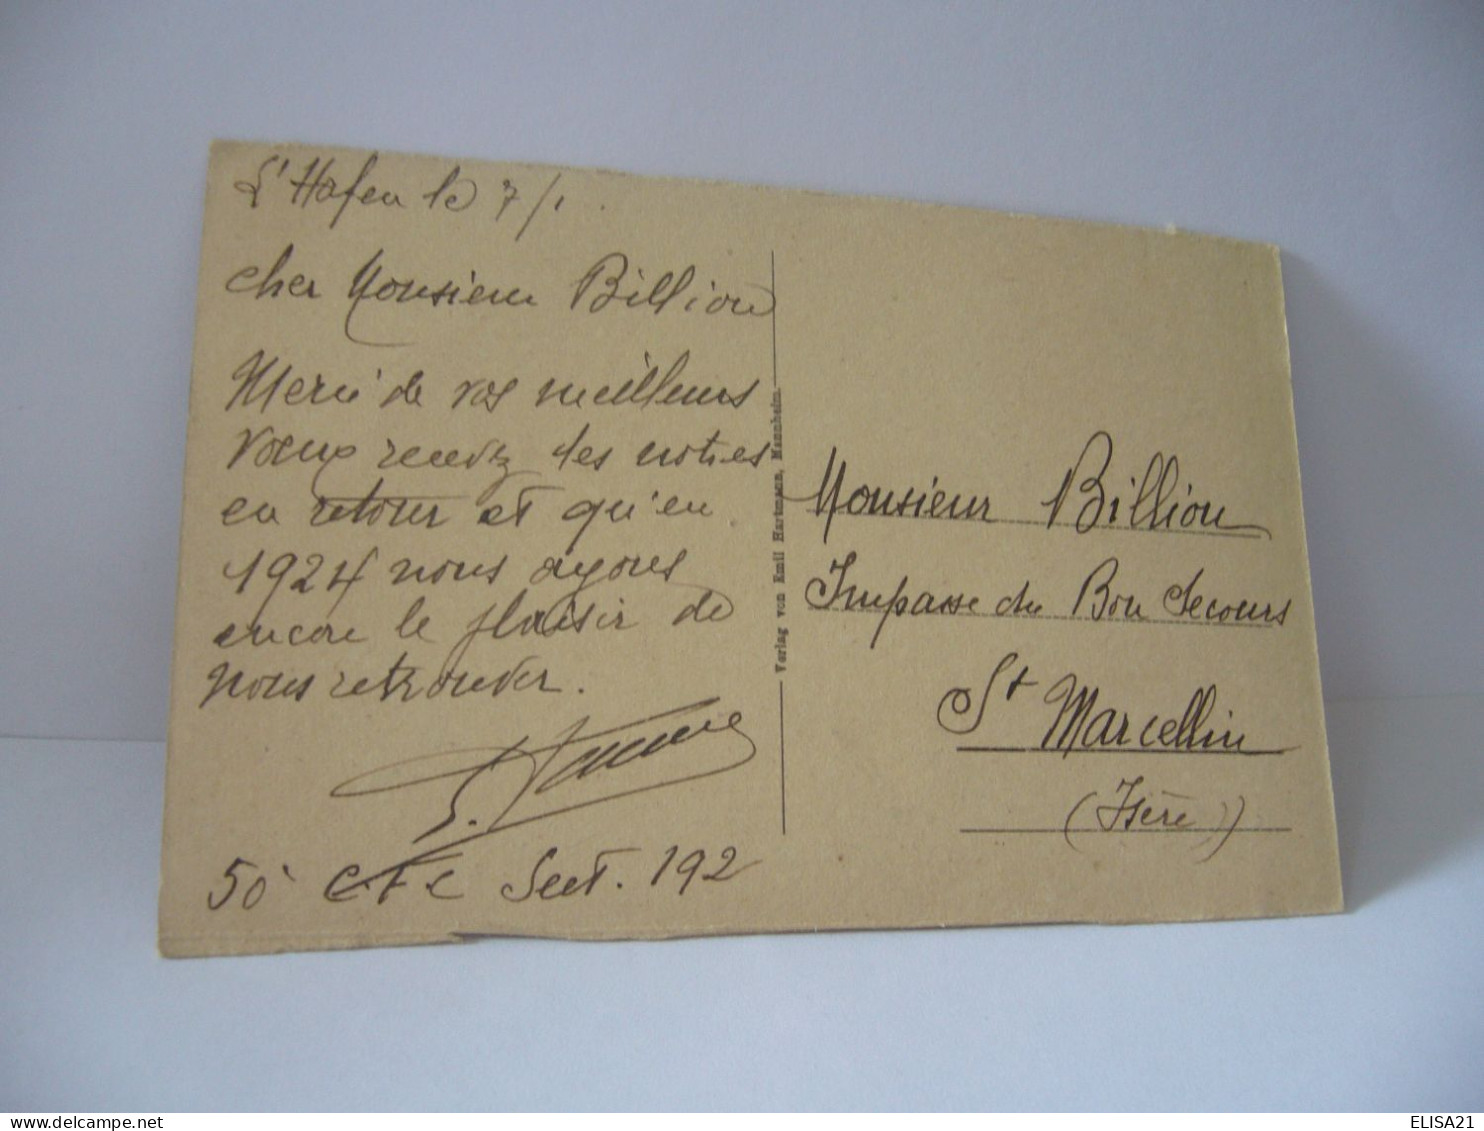 L'Hafen le 7/1.
cher Monsieur Billion
Merci de vos meilleurs
voeux recevez des notres
en retour et qu'en
1924 nous ayons
encore le plaisir de
nous retrouver.
50 C.F.C Sect. 192
Verlag von Emil Hartmann, Mannheim.
Monsieur Billion
Impasse du Bon Secours
St Marcellin
(Isère)
ELISA21